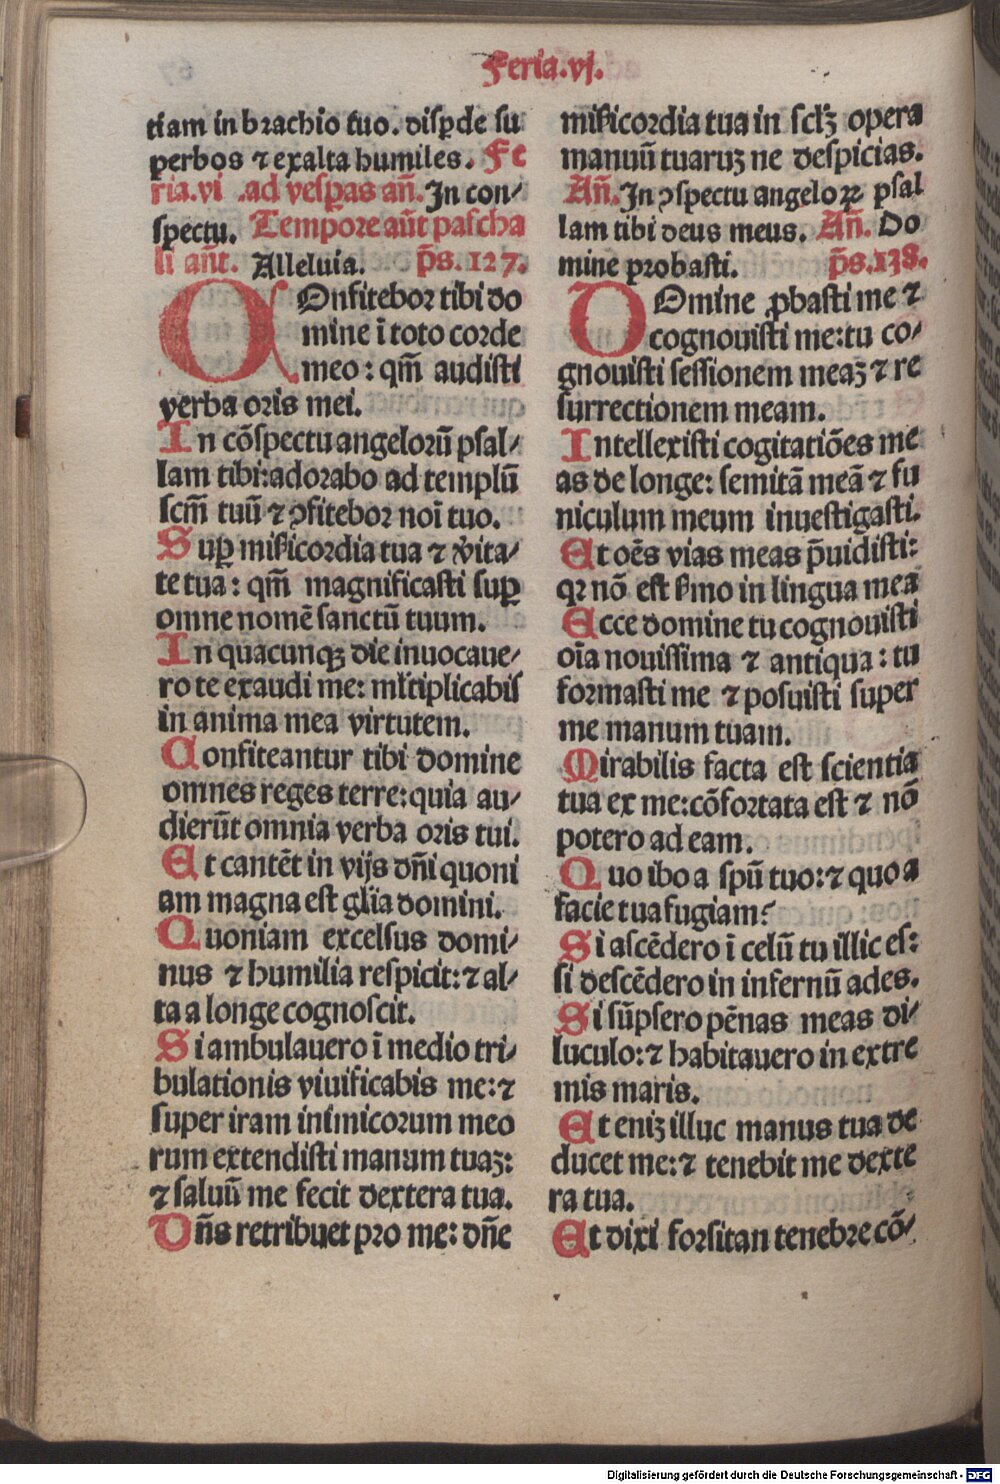 Feria.vj.
tiam in brachio tuo. disꝑde su
perbos ⁊ exalta humiles. Fe
ria.vi .ad vesꝑas añ. In con⸗
spectu. Tempore aūt pascha
li añt. Alleluia. p̄s. 127.
COnfitebor tibi do
mine ī toto corde
meo : qm̄ audisti
verba oris mei.
In cōspectu angelorū psal⸗
lam tibi:adorabo ad templū
scm̄ tuū ⁊ ꝯfitebor noī tuo.
Suꝑ mīsicordia tua ⁊ v̓ita⸗
te tua : qm̄ magnificasti suꝑ
omne nomē sanctū tuum.
In quacunqꝫ die inuocaue⸗
ro te exaudi me: ml̓tiplicabis
in anima mea virtutem.
Confiteantur tibi domine
omnes reges terre:quia au⸗
dierūt omnia verba oris tui.
Et cantēt in vijs dn̄i quoni
am magna est gl̓ia domini.
Quoniam excelsus domi⸗
nus ⁊ humilia respicit:⁊ al⸗
ta a longe cognoscit.
Si ambulauero ī medio tri⸗
bulationis viuificabis me:⁊
super iram inimicorum meo
rum extendisti manum tuaꝫ:
⁊ saluū me fecit dextera tua.
Dn̄s retribuet pro me: dn̄e
misicordia tua in scl̓ꝫ opera
manuū tuaruꝫ ne despicias.
Añ. In ꝯspectu angeloꝝ psal
lam tibi deus meus. Añ. Do
mine probasti. p̄s.138.
DOmine ꝓbasti me ⁊
cognouisti me:tu co⸗
gnouisti sessionem meaꝫ ⁊ re
surrectionem meam.
Intellexisti cogitatiōes me
as de longe: semitā meā ⁊ fu
niculum meum inuestigasti.
Et oēs vias meas p̄uidisti:
qꝛ nō est s̓mo in lingua mea
Ecce domine tu cognouisti
oīa nouissima ⁊ antiqua : tu
formasti me ⁊ posuisti super
me manum tuam.
Mirabilis facta est scientia
tua ex me:cōfortata est ⁊ nō
potero ad eam.
Quo ibo a spū tuo:⁊ quo a
facie tua fugiam?
Si ascēdero ī celū tu illic es:
si descēdero in infernū ades.
Si sūpsero pēnas meas di⸗
luculo:⁊ habitauero in extre
mis maris.
Et eniꝫ illuc manus tua de
ducet me:⁊ tenebit me dexte
ra tua.
Et dixi forsitan tenebre cō⸗
Digitalisierung gefördert durch die Deutsche Forschungsgemeinschaft - DFG